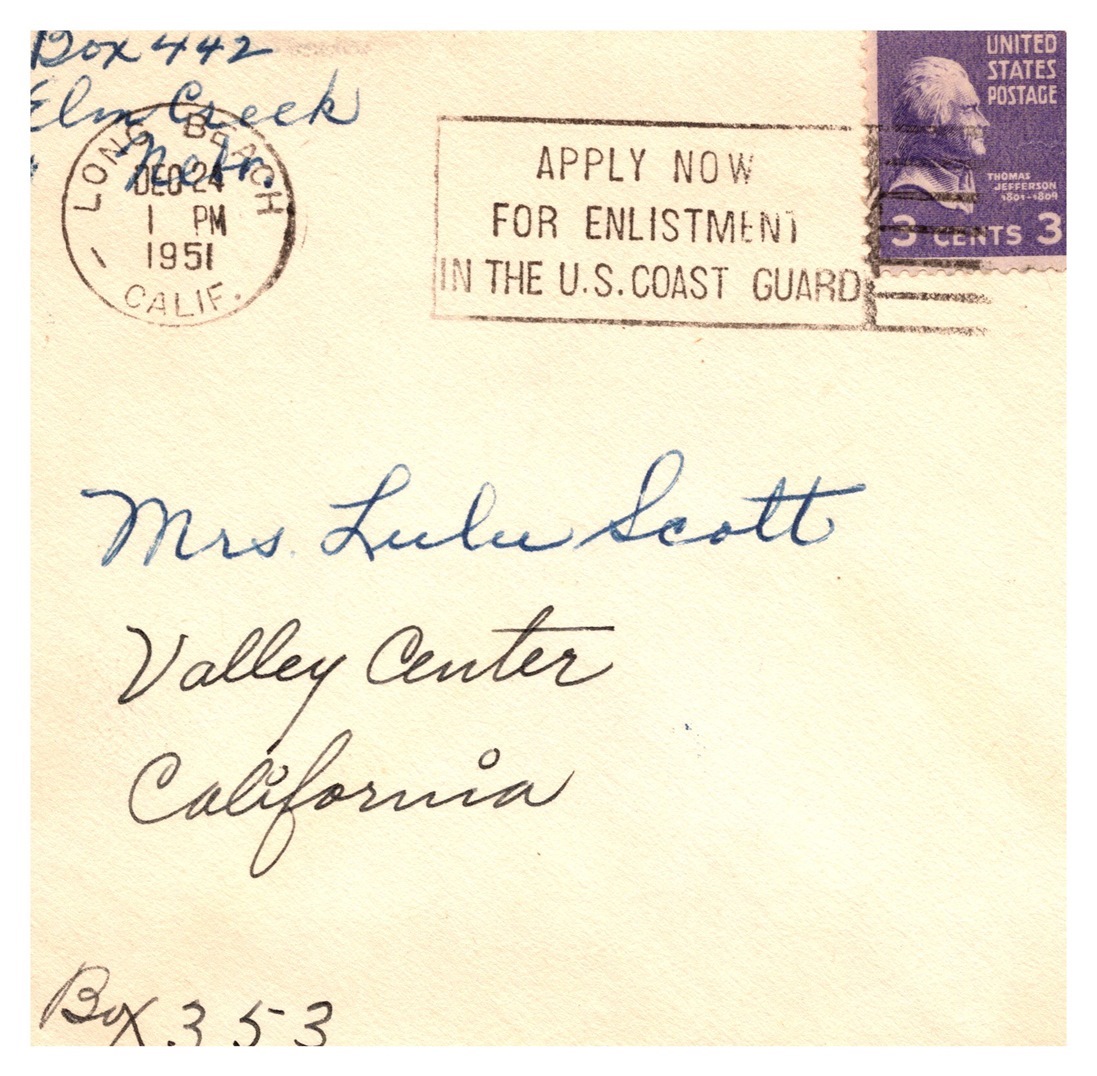 Box 442
Elm Creek
Nebr.
LONG BEACH
DEC 24
1 PM
1951
CALIF.
APPLY NOW
FOR ENLISTMENT
IN THE U.S. COAST GUARD
UNITED
STATES
POSTAGE
THOMAS
JEFFERSON
1801-1809
3 CENTS 3
Mrs. Lulu Scott
Valley Center
California
Box 353